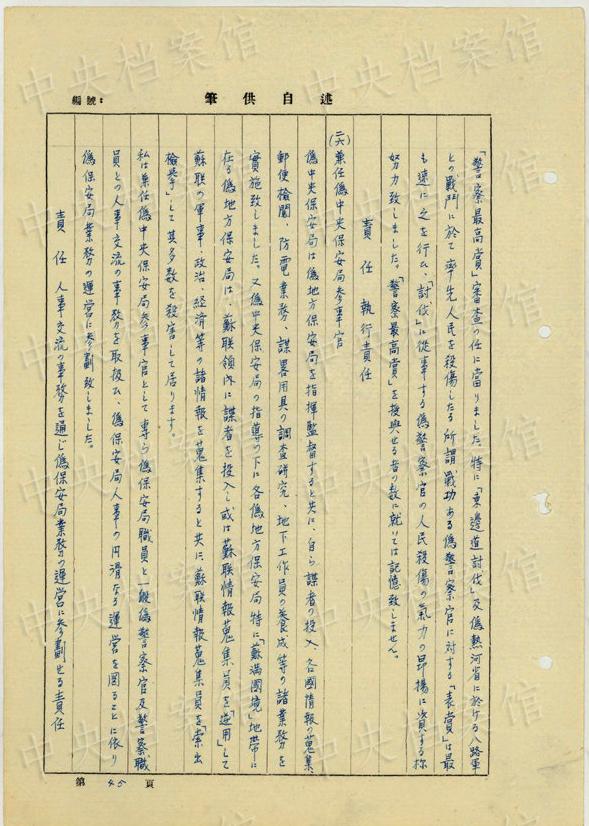 編號:
述自供筆
「警察最高賞」審査の任に當りました。特に「東邊道討伐」及偽熱河省に於ける八路軍
との戰鬥に於て率先人民を殺傷したる所謂戰功ある偽警察官に対する「表賞」は最
も速に之を行ひ、「討伐」に從事する偽警察官の人民殺傷の氣力の昻揚に資する様
努力致しました。「警察最高賞」を授與せる者の数に就いては記憶致しません。
責任 執行責任
(六)兼任偽中央保安局参事官
偽中央保安局は偽地方保安局を指揮監督すると共に、自ら諜者の投入、各國情報の蒐集、
郵便檢閲、防電業務、謀畧用具の調査研究、地下工作員の養成等の諸業務を
實施致しました。又偽中央保安局の指導の下に各偽地方保安局特に「蘇満國境」地帯に
在る偽地方保安局は、蘇联領内に諜者を投入し或は蘇联情報蒐集員を「逆用」して
蘇联の軍事、政治、経済等の諸情報を蒐集すると共に、蘇联情報蒐集員を「索出
檢挙」して其多数を殺害して居ります。
私は兼任偽中央保安局参事官として專ら偽保安局職員と一般偽警察官及警察職
員との人事交流の事務を取扱ひ、偽保安局人事の円滑なる運営を図ることに依り
偽保安局業務の運営に参劃致しました。
責任 人事交流の事務を通じ偽保安局業務の運営に参劃せる責任
第 45 頁
中央档案馆